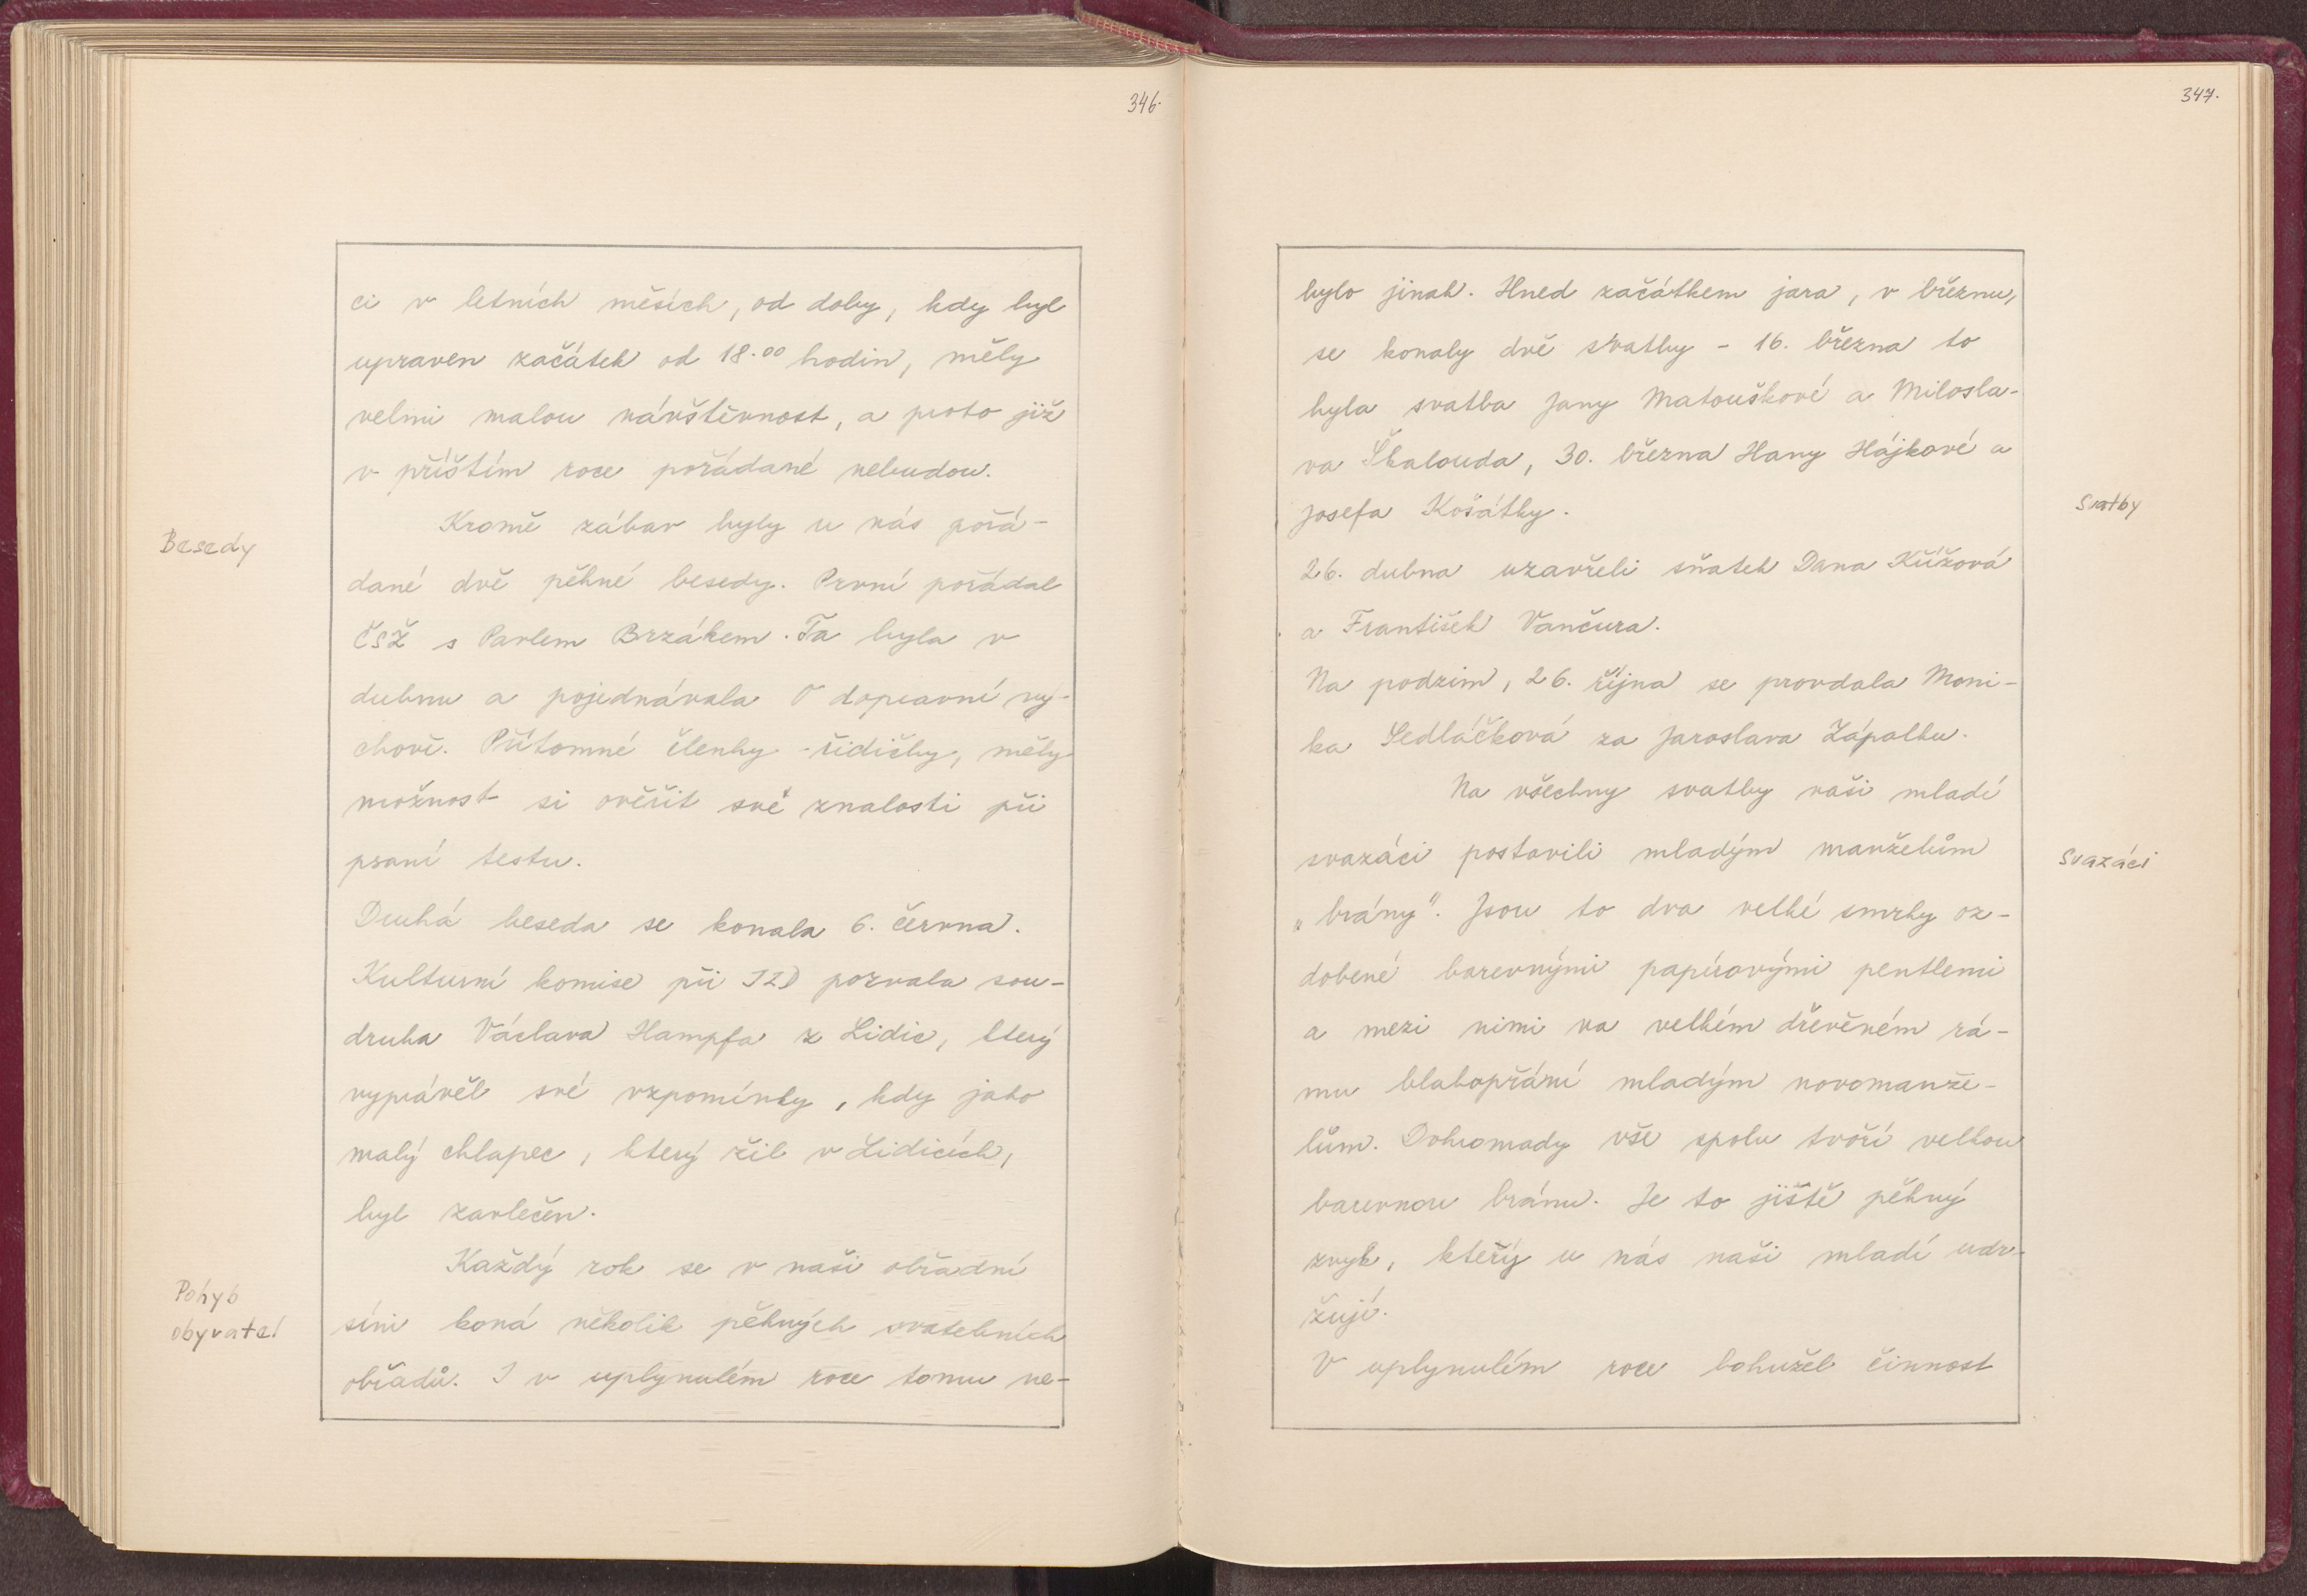 346.
ci v letních měsích, od doby, kdy byl
upraven začátek od 18.00 hodin, měly
velmi malou návštěvnost, a proto již
v příštím roce pořádané nebudou.
Besedy
Kromě zábav byly u nás pořá-
dané dvě pěkné besedy. První pořádal
ČSŽ s Pavlem Brzákem. Ta byla v
dubnu a pojednávala o dopravní vý-
chově. Přítomné členky - řidičky, měly
možnost si ověřit své znalosti při
psaní testu.
Druhá beseda se konala 6. června.
Kulturní komise při JZD pozvala sou-
druha Václava Hampfa z Lidic, který
vyprávěl své vzpomínky, kdy jako
malý chlapec, který žil v Lidicích,
byl zavlečen.
Každý rok se v naši obřadní
Pohyb
obyvatel
síni koná několik pěkných svatebních
obřadů. I v uplynulém roce tomu ne-
347.
bylo jinak. Hned začátkem jara, v březnu,
se konaly dvě svatby - 16. března to
byla svatba Jany Matouškové a Milosla-
va Škalouda, 30. března Hany Hájkové a
Josefa Košátky.
Svatby
26. dubna uzavřeli sňatek Dana Křížová
a František Vančura.
Na podzim, 26. října se provdala Moni-
ka Sedláčková za Jaroslava Zápalku.
Na všechny svatby naši mladí
svazáci postavili mladým manželům
Svazáci
„brány". Jsou to dva velké smrky oz-
dobené barevnými papírovými pentlemi
a mezi nimi na velkém dřevěném rá-
mu blahopřání mladým novomanže-
lům. Dohromady vše spolu tvoří velkou
barevnou bránu. Je to jiště pěkný
zvyk, který u nás naši mladí udr-
žují.
V uplynulém roce bohužel činnost